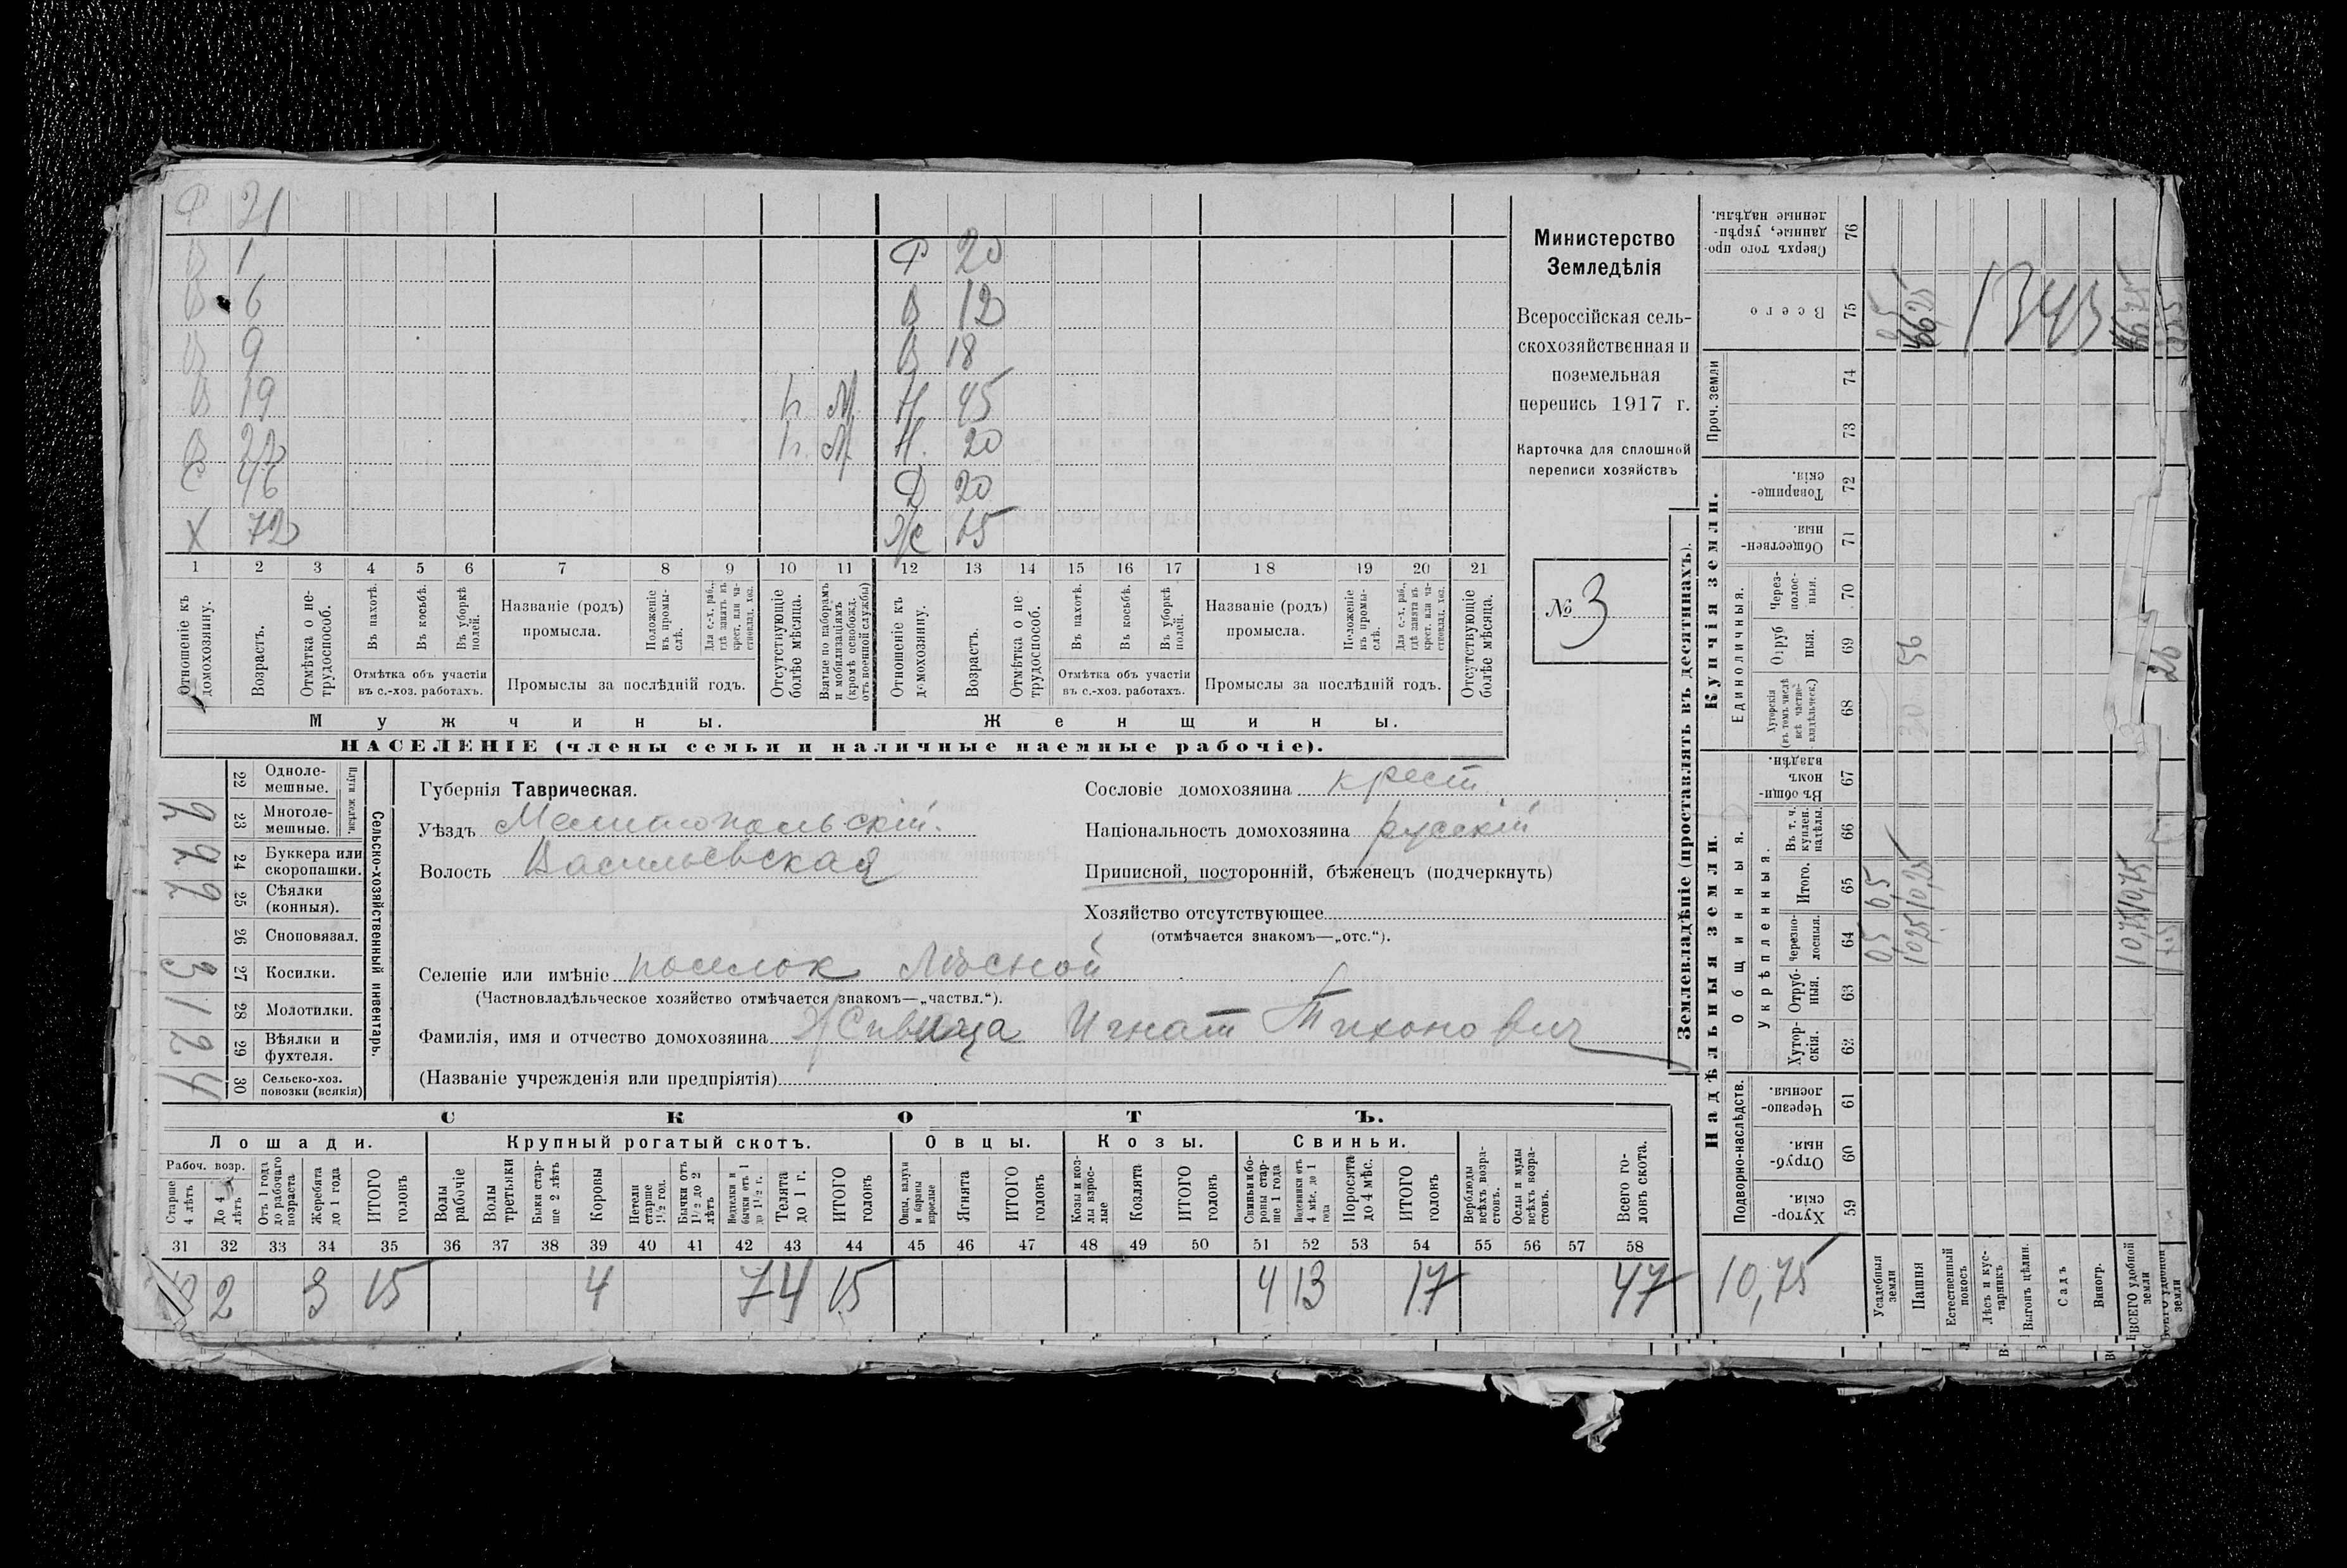 Ф 21
В 1 Ф 20
В 6 В 12
В 9 В 18
В 19 Н. 45
В 22 Н. 20
С 46 Д 20
Х 72 Ж 75
1 2 3 4 5 6 7 8 9 10 11 12 13 14 15 16 17 18 19 20 21
Отношеніе къ домохозяину.
Возрастъ.
Отмѣтка о не-трудоспособ.
Въ пахотѣ.
Въ косьбѣ.
Въ уборкѣ полей.
Отмѣтка объ участіи
въ с.-хоз. работахъ.
Названіе (родъ)
промысла.
Положеніе въ промы-слѣ.
Для с.-х. раб., гдѣ занятъ въ крест. или ча-стновлад. хоз.
Промыслы за послѣдній годъ.
Отсутствующіе болѣе мѣсяца.
Взятые по наборамъ и мобилизаціямъ (кромѣ освобожд. отъ военной службы)
Отношеніе къ домохозяину.
Возрастъ.
Отмѣтка о не-трудоспособ.
Въ пахотѣ.
Въ косьбѣ.
Въ уборкѣ полей.
Отмѣтка объ участіи
въ с.-хоз. работахъ.
Названіе (родъ)
промысла.
Положеніе въ промы-слѣ.
Для с.-х. раб., гдѣ занята въ крест. или ча-стновлад. хоз.
Промыслы за послѣдній годъ.
Отсутствующіе болѣе мѣсяца.
Мужчины. Женщины.
НАСЕЛЕНІЕ (члены семьи и наличные наемные рабочіе).
Министерство
Земледѣлія
Всероссійская сель-
скохозяйственная и
поземельная
перепись 1917 г.
Карточка для сплошной
переписи хозяйствъ
№ 3
22 Одноле-мешные.
23 Многоле-мешные.
Плуги желѣзн.
24 Буккера или скоропашки.
25 Сѣялки (конныя).
26 Сноповязал.
27 Косилки. 3
28 Молотилки. 1
29 Вѣялки и фухтеля. 2
30 Сельско-хоз. повозки (всякія) 4
Сельско-хозяйственный инвентарь.
Губернія Таврическая.
Уѣздъ Мелитопольскій.
Волость Васильевская
Селеніе или имѣніе поселок Лѣсной
(Частновладѣльческое хозяйство отмѣчается знакомъ—„частвл.“).
Фамилія, имя и отчество домохозяина Игнат Тихонович
(Названіе учрежденія или предпріятія)
Сословіе домохозяина крест.
Національность домохозяина русскій
Приписной, посторонній, бѣженецъ (подчеркнуть)
Хозяйство отсутствующее
(отмѣчается знакомъ—„отс.“).
СКОТЪ.
Лошади. Крупный рогатый скотъ. Овцы. Козы. Свиньи.
Рабоч. возр.
Старше 4 лѣтъ
До 4 лѣтъ
Отъ 1 года до рабочаго возраста
Жеребята до 1 года
ИТОГО головъ
Волы рабочіе
Волы третьяки
Быки стар-ше 2 лѣтъ
Коровы
Нетели старше 1½ год.
Бычки отъ 1½ до 2 лѣтъ
Телята до 1 г.
ИТОГО головъ
Овцы, валухи и бараны взрослые
Ягнята
ИТОГО головъ
Козы и коз-лы взрос-лые
Козлята
ИТОГО головъ
Свиньи и бо-ровы стар-ше 1 года
Подсвинки отъ 4 мѣс. до 1 года
Поросята до 4 мѣс.
ИТОГО головъ
Верблюды всѣхъ возра-стовъ.
Ослы и мулы всѣхъ возра-стовъ.
Всего го-ловъ скота.
31 32 33 34 35 36 37 38 39 40 41 42 43 44 45 46 47 48 49 50 51 52 53 54 55 56 57 58
2 3 15 4 7 4 15 4 13 17 47
10,75
Землевладѣніе (проставлять въ десятинахъ).
Купчія земли.
Надѣльныя земли.
Сверхъ того про-данные, укрѣп-ленные надѣлы. 76
Всего 75
Проч. земли 74 73
Товарище-скія. 72
Обществен-ныя. 71
Единоличныя.
Через-полос-ныя. 70
Отруб ныя. 69
Хуторскія (въ томъ числѣ всѣ частно-владѣльческ.) 68
Въ общин-номъ владѣн. 67
Общинныя.
Укрѣпленныя.
Въ т. ч. куплен. надѣлы. 66
Итого. 65
Черезпо-лосныя. 64
Отруб-ныя. 63
Хутор-скія. 62
Подворно-наслѣдств.
Черезпо-лосныя. 61
Отруб-ныя. 60
Хутор-скія. 59
Усадебныя земли
Пашня
Естественный покосъ
Лѣсъ и кус-тарникъ
Выгонъ цѣлин.
Садъ
Виногр.
ВСЕГО удобной земли
0,5 0,5
10,25 10,25
56
30
1343
10,75 10,75